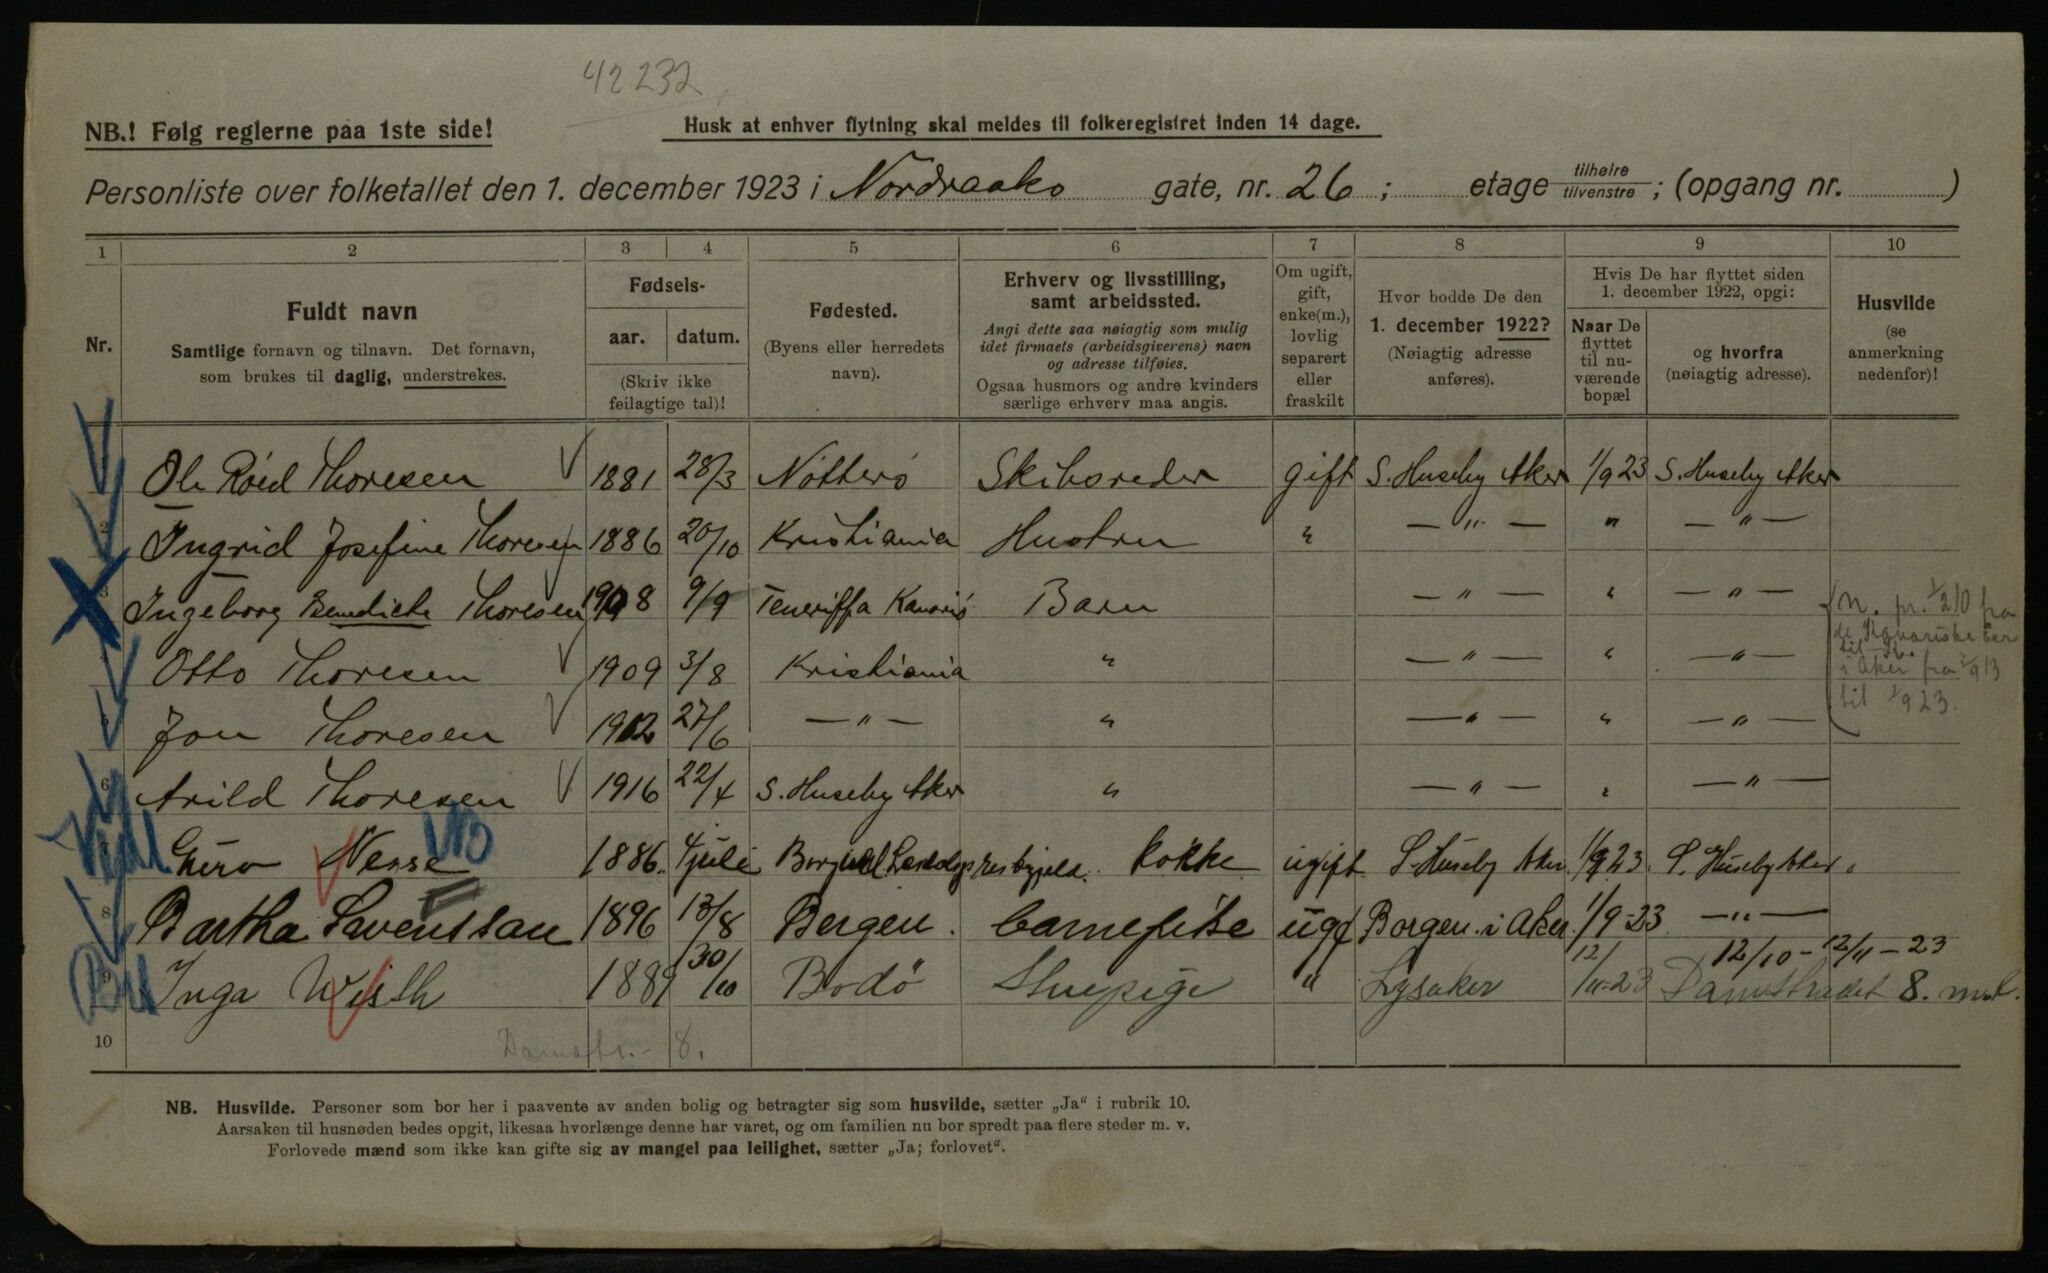 42232
NB.! Følg reglerne paa 1ste side!
Husk at enhver flytning skal meldes til folkeregistret inden 14 dage.
Personliste over folketallet den 1. december 1923 i Nordraaks gate, nr. 26; etage tilhøire tilvenstre; (opgang nr. )
1 2 3 4 5 6 7 8 9 10
Nr.
Fuldt navn
Samtlige fornavn og tilnavn. Det fornavn,
som brukes til daglig, understrekes.
Fødsels-
aar. datum.
(Skriv ikke
feilagtige tal)!
Fødested.
(Byens eller herredets
navn).
Erhverv og livsstilling,
samt arbeidssted.
Angi dette saa nøiagtig som mulig
idet firmaets (arbeidsgiverens) navn
og adresse tilføies.
Ogsaa husmors og andre kvinders
særlige erhverv maa angis.
Om ugift,
gift,
enke(m.),
lovlig
separert
eller
fraskilt
Hvor bodde De den
1. december 1922?
(Nøiagtig adresse
anføres).
Hvis De har flyttet siden
1. december 1922, opgi:
Naar De
flyttet
til nu-
værende
bopæl
og hvorfra
(nøiagtig adresse).
Husvilde
(se
anmerkning
nedenfor)!
Ole Röed Thoresen 1881 28/3 Nötterö Skibsreder gift S. Huseby Aker 1/9 23 S. Huseby Aker
2 Ingrid Josefine Thoresen 1886 20/10 Kristiania Hustru " — " — " — " —
3 Ingeborg Benedicte Thoresen 1908 9/9 Teneriffa Kanariö Barn — " — " — " —
4 Otto Thoresen 1909 3/8 Kristiania " — " — " — " —
5 Jon Thoresen 1912 27/6 — " — " — " — " — " —
6 Arild Thoresen 1916 22/4 S. Huseby Aker " — " — " — " —
Guro Nesse 1886. 4 juli kokke ugift S. Huseby Aker 1/9 23. S. Huseby Aker.
8 Bartha 1896 13/8 Bergen. ugf Borgen i Aker 1/9-23 — " —
12/10 - 12/11 - 23
9 Inga Wisth 1889 30/10 Bodø Stuepige " Lysaker 12/11-23 Damstrædet 8.
10 Damstr. - 8.
i Aker fra
til 1/9 23.
NB. Husvilde. Personer som bor her i paavente av anden bolig og betragter sig som husvilde, sætter „Ja“ i rubrik 10.
Aarsaken til husnøden bedes opgit, likesaa hvorlænge denne har varet, og om familien nu bor spredt paa flere steder m. v.
Forlovede mænd som ikke kan gifte sig av mangel paa leilighet, sætter „Ja; forlovet“.